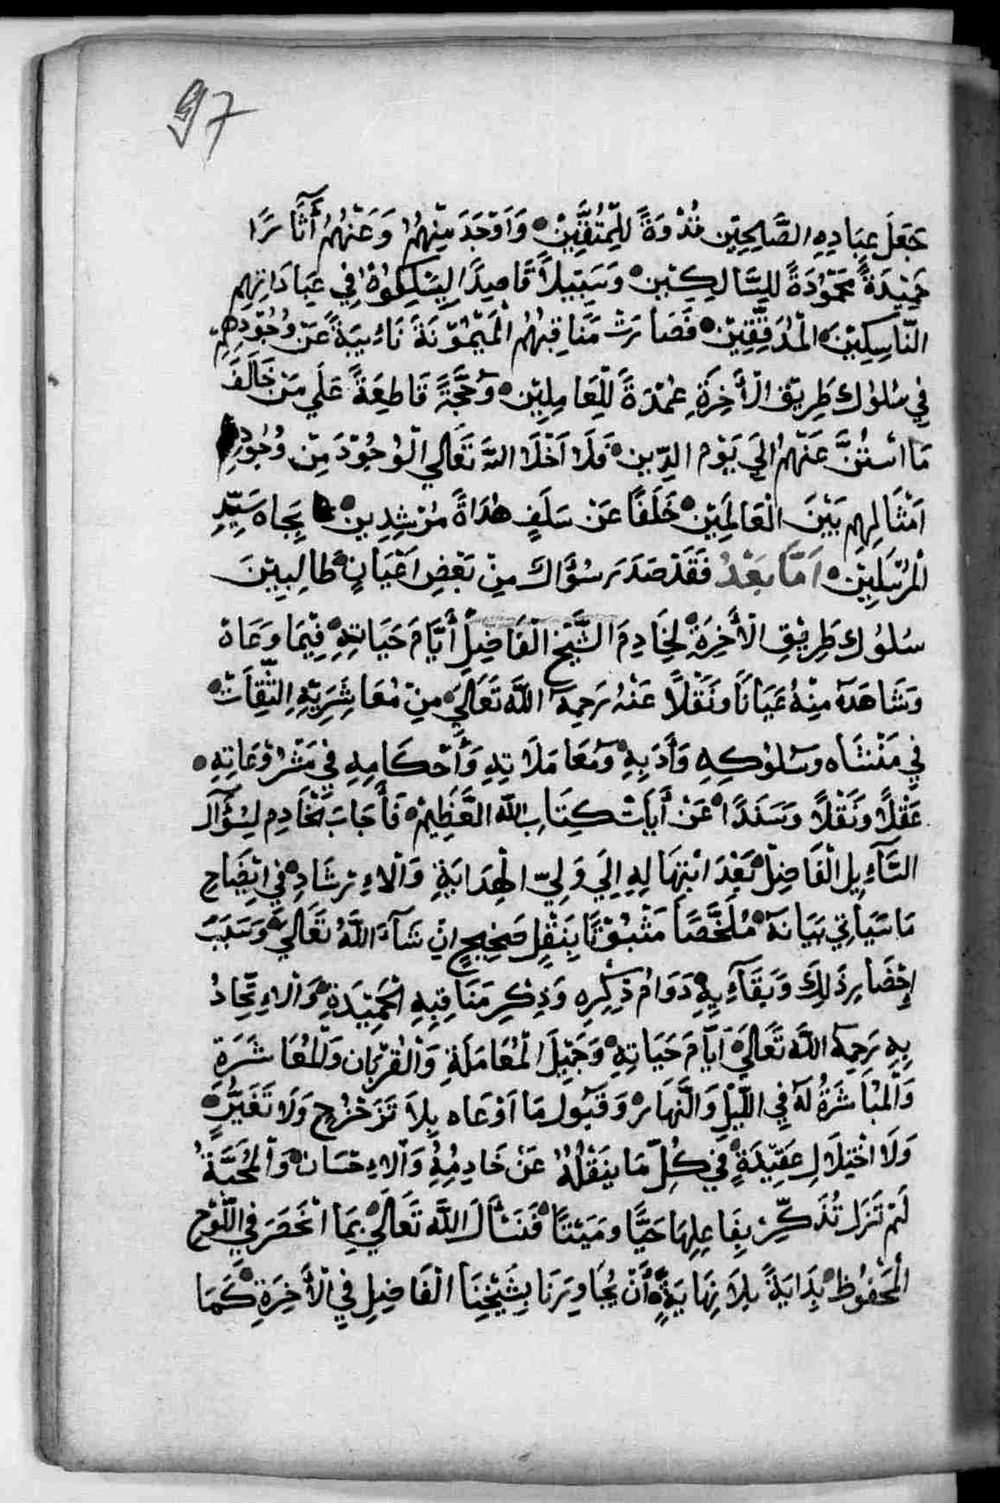 97
جَعَلَ عِبَادِهِ الصَّالِحِيْنَ قُدْوَةً لِلْمُتَّقِيْنَ وَاَوْجَدَ مِنْهُمْ وَعَنْهُمْ أَثَارًا
حَمِيْدَةً مَحْمُوْدَةً لِلسَّالِكِيْنَ وَسَبِيْلًا قَاصِدًا لِيَسْلِكُوْا فِي عِبَادَاتِهِمِ
النَّاسِكِيْنَ الْمُدَقِّقِيْنَ فَصَارَتْ مَنَاقِبُهُمُ الْمَيْمُوْنَةَ نَاءِبَةً عَنْ وُجُوْدِهِمْ
فِي سُلُوْكِ طَرِيْقِ الْأَخِرَةِ عُمْدَةً لِلْعَامِلِيْنَ وَحُجَّةً قَاطِعَةً عَلَي مَنْ خَالَفَ
مَا اسْتُنَّ عَنْهُمْ اِلَي يَوْمِ الدِّيْنِ فَلَا اَخْلَا اللهُ تَعَالَي الْوُجُوْدَ مِنْ وُجُوْدِ
اَمْثَالِهِمْ بَيْنَ الْعَالَمِيْنَ خَلَفًا عَنْ سَلَفٍ هُدَاةً مُرْشِدِيْنَ بِجَاهِ سَيِّدِ
الْمُرْسَلِيْنَ اَمَّا بَعْدُ فَقَدْ صَدَرَ سُؤَاك مِنْ بَعْضِ اَعْيَانٍ طَالِبِيْنَ
سُلُوْكَ طَرِيْقِ الْأَخِرَةِ لِخَادِمِ الشَّيْخِ الْفَاضِلِ أَيَّامَ حَيَاتِهِ فِيْمَا وَعَاهُ
وَشَاهَدَهُ مِنْهُ عِيَانًا وَنَقْلًا عَنْهُ رَحِمَهُ اللهُ تَعَالَي مِنْ مُعَاشِرِيْهِ الثِّقَاتِ
فِي مَنْشَاهُ وَسُلُوْكِهِ وَأَدَبِهِ وَمُعَامَلَاتِهِ وَأَحْكَامِهِ فِي مَشْرُوْعَاتِهِ
عَقْلًا وَنَقْلًا وَسَنَدًا عَنْ أَيَاتِ كِتَابِ اللهِ الْعَظِيْمِ فَأَجَابَ الْخَادِمُ لِسُؤَالِ
السَّآءِلِ الْفَاضِلِ بَعْدَ ابْتِهَالِهِ اِلَي وَلِيِّ الْهِدَايَةِ وَالْاِرْشَادِ فِي اتِّضَاحِ
مَا سَيَأْتِي بَيَانُهُ مُلَخَّصًا مَثْبُوْتًا بِنَقْلٍ صَحِيْحٍ اِنْ شَآءَ اللهُ تَعَالَي وَسَبَبُ
اِحْضَارِ ذَلِكَ وَبَقَآءِهِ دَوَامُ ذِكْرِهِ وَذِكْرِ مَنَاقِبِهِ الْحَمِيْدَةِ وَالْاِتِّحَادُ
بِهِ رَحِمَهُ اللهُ تَعَالَي اَيَّامَ حَيَاتِهِ وَجَمِيْلِ الْمُعَامَلَةِ وَالْقُرْبَانِ وَالْمُعَاشَرَةِ
وَالْمُبَاشَرَةُ لَهُ فِي اللَّيْلِ وَالنَّهَارِ وَقَبُوْلِ مَا اَوْعَاهُ بِلَا تَزَحْزُحٍ وَلَا تَغَيُّرٍ
وَلَا اخْتِلَالِ عَقِيْدَةٍ فِي كُلِّ مَا يَنْقُلُهُ عَنْ خَادِمِهِ وَالْاِحْسَانِ وَالْمَحَبَّةُ
لَمْ تَزَلْ تُذَكِّرُ بِفَاعِلِهَا حَيًّا وَمَيْتًا فَنَسْأَلُ اللهَ تَعَالَي بِمَا انْحَصَرَ فِي اللَّوْحِ
الْمَحْفُوْظِ بِدَايَةً بِلَا نِهَايَةٍ أَنْ يُجَاوِرَنَا بِشَيْخِنَا الْفَاضِلِ فِي الْأَخِرَةِ كَمَا